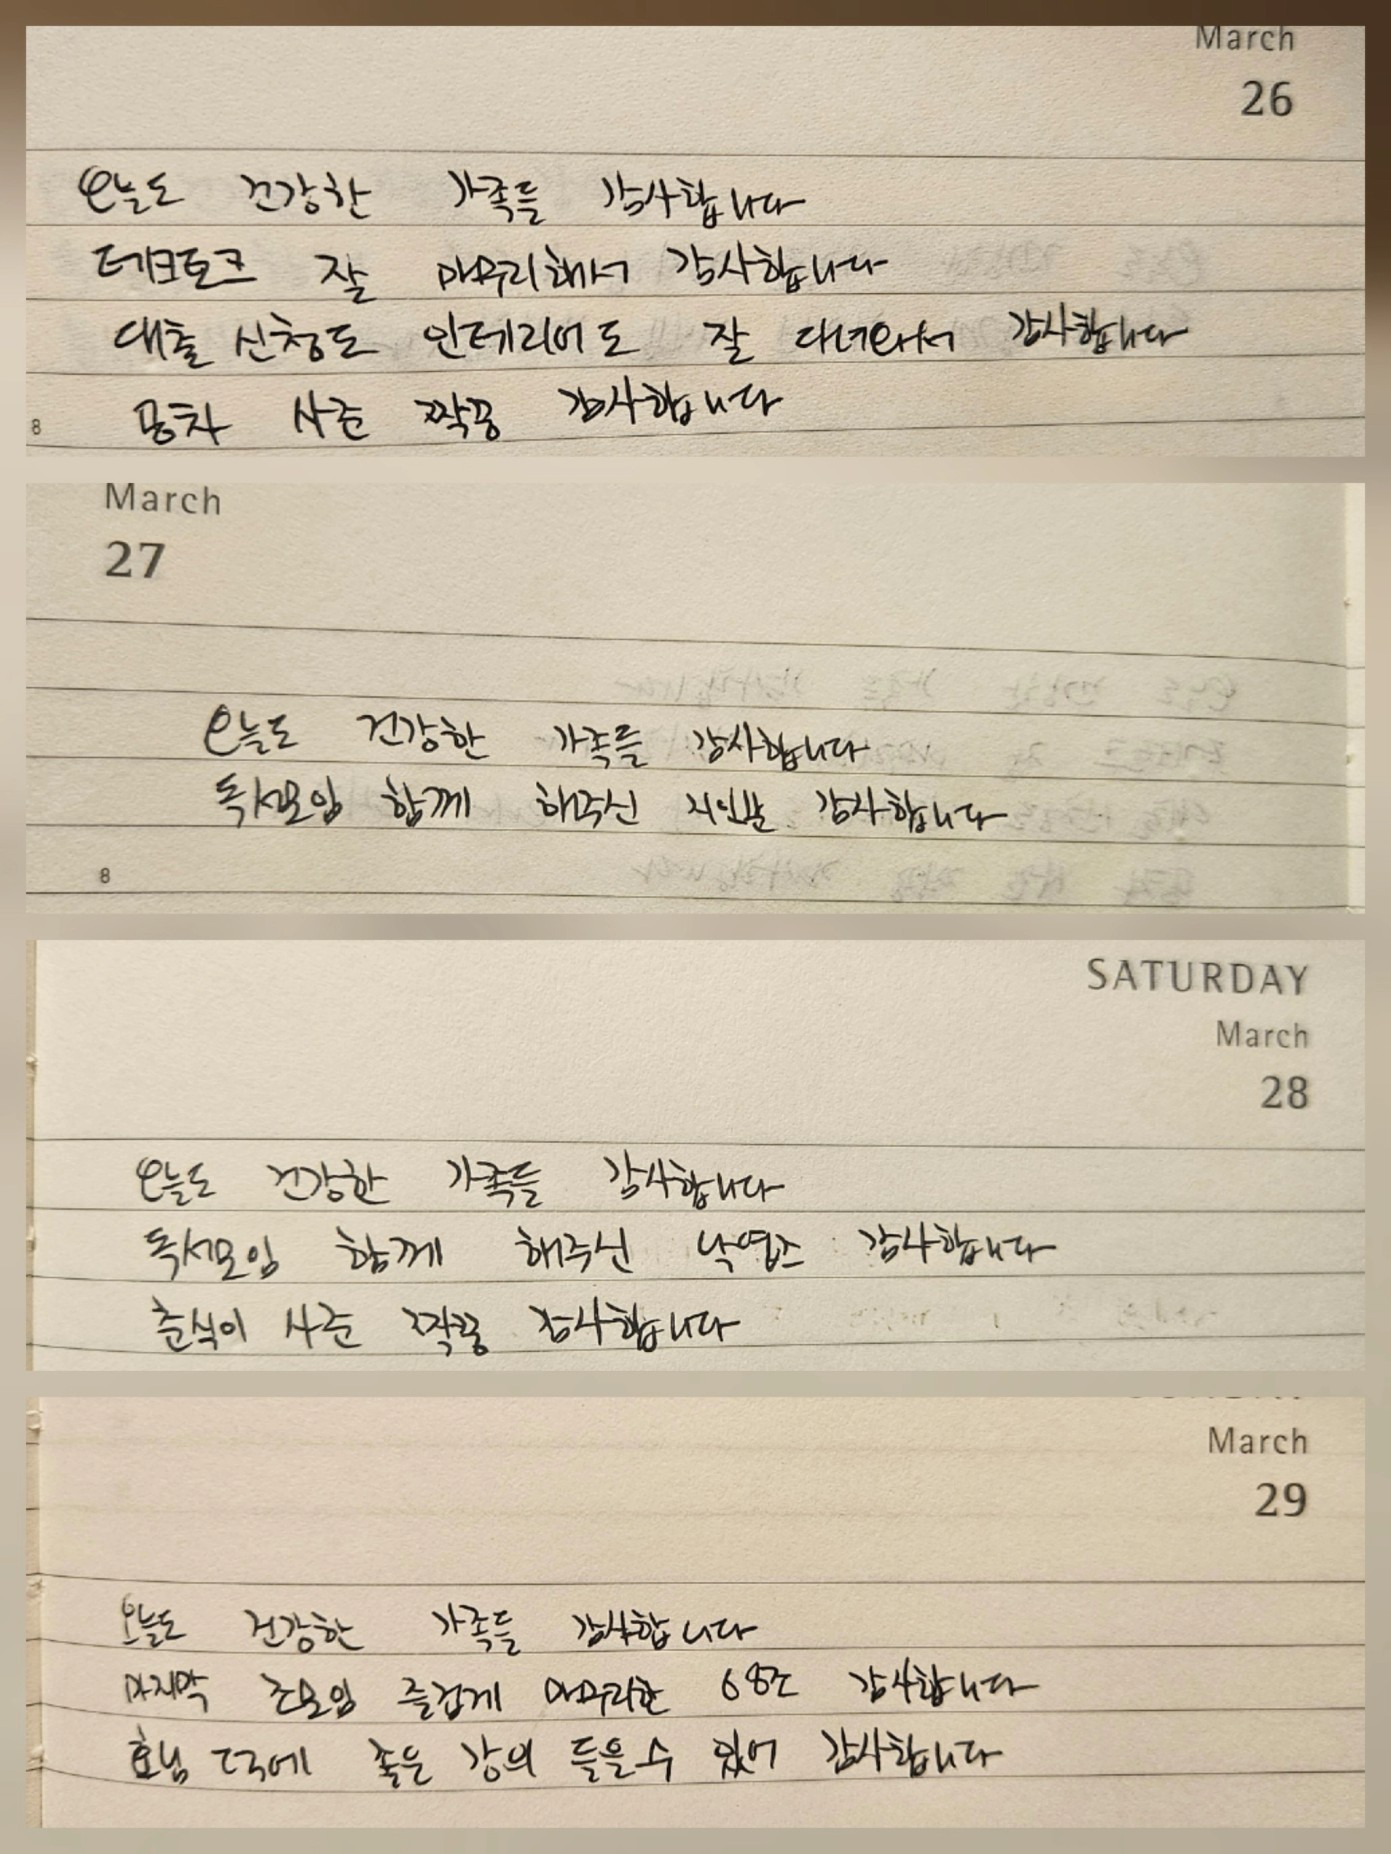 March
26
오늘도 건강한 가족들 감사합니다
테크토크 잘 마무리해서 감사합니다
대출 신청도 인테리어도 잘 다녀와서 감사합니다
공차 사준 짝꿍 감사합니다
8
March
27
오늘도 건강한 가족들 감사합니다
독서모임 함께 해주신 지인분 감사합니다
8
SATURDAY
March
28
오늘도 건강한 가족들 감사합니다
독서모임 함께 해주신 감사합니다
춘식이 사준 짝꿍 감사합니다
March
29
오늘도 건강한 가족들 감사합니다
마지막 조모임 즐겁게 마무리한 68조 감사합니다
덕에 좋은 강의 들을수 있어 감사합니다